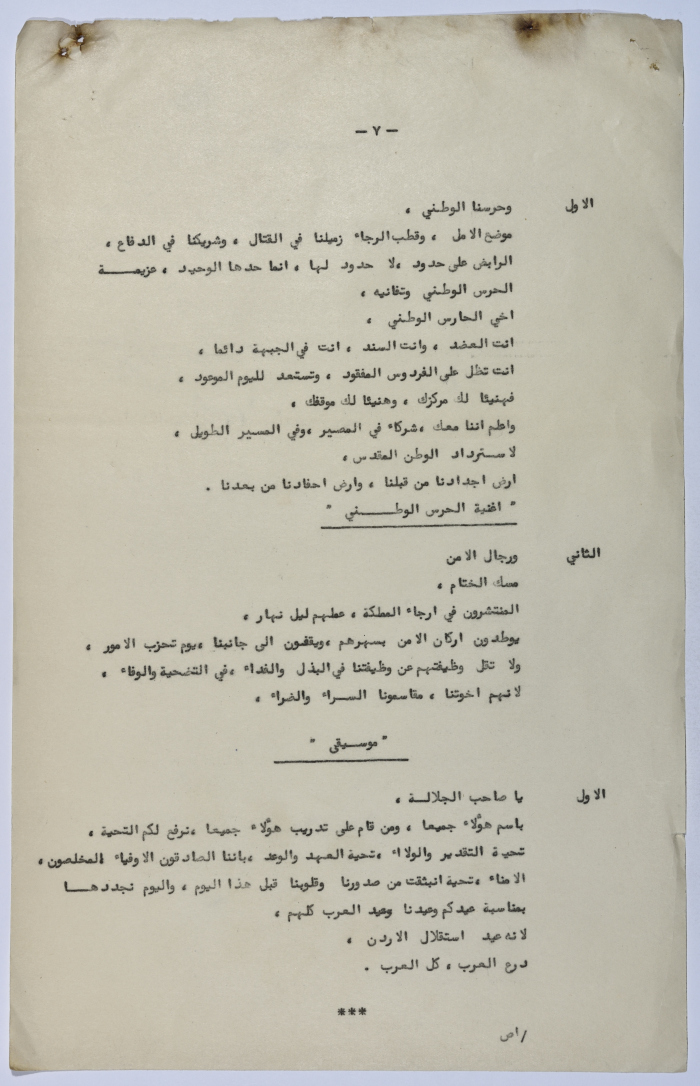 — ٧ —
الاول وحرسنا الوطني ،
موضع الامل ، وقطب الرجاء زميلنا في القتال ، وشريكنا في الدفاع ،
الرابض على حدود ،لا حدود لها ، انما حدها الوحيد ، عزيمة
الحرس الوطني وتفانيه ،
اخي الحارس الوطني ،
انت العضد ، وانت السند ، انت في الجبهة دائما ،
انت تظل على الفردوس المفقود ، وتستعد لليوم الموعود ،
فهنيئا لك مركزك ، وهنيئا لك موقفك ،
واعلم اننا معك ،شركاء في المصير ،وفي المسير الطويل ،
لاسترداد الوطن المقدس ،
ارض اجدادنا من قبلنا ، وارض احفادنا من بعدنا .
" اغنية الحرس الوطني "
الثاني ورجال الامن
مسك الختام ،
المنتشرون في ارجاء المملكة ، عطهم ليل نهار ،
يوطدون اركان الامن بسهرهم ،ويقفون الى جانبنا ،يوم تحزب الامور ،
ولا تقل وظيفتهم عن وظيفتنا في البذل والفداء ،في التضحية والوفاء ،
لانهم اخوتنا ، مقاسمونا السراء والضراء ،
" موسيقى "
الاول يا صاحب الجلالة ،
باسم هؤلاء جميعا ، ومن قام على تدريب هؤلاء جميعا ،نرفع لكم التحية ،
تحية التقدير والولاء ،تحية العهد والوعد ،باننا الصادقون الاوفياء المخلصون ،
الامناء ،تحية انبثقت من صدورنا وقلوبنا قبل هذا اليوم ، واليوم نجددها
بمناسبة عيدكم وعيدنا وعيد العرب كلهم ،
لانه عيد استقلال الاردن ،
درع العرب ، كل العرب .
***
/اص